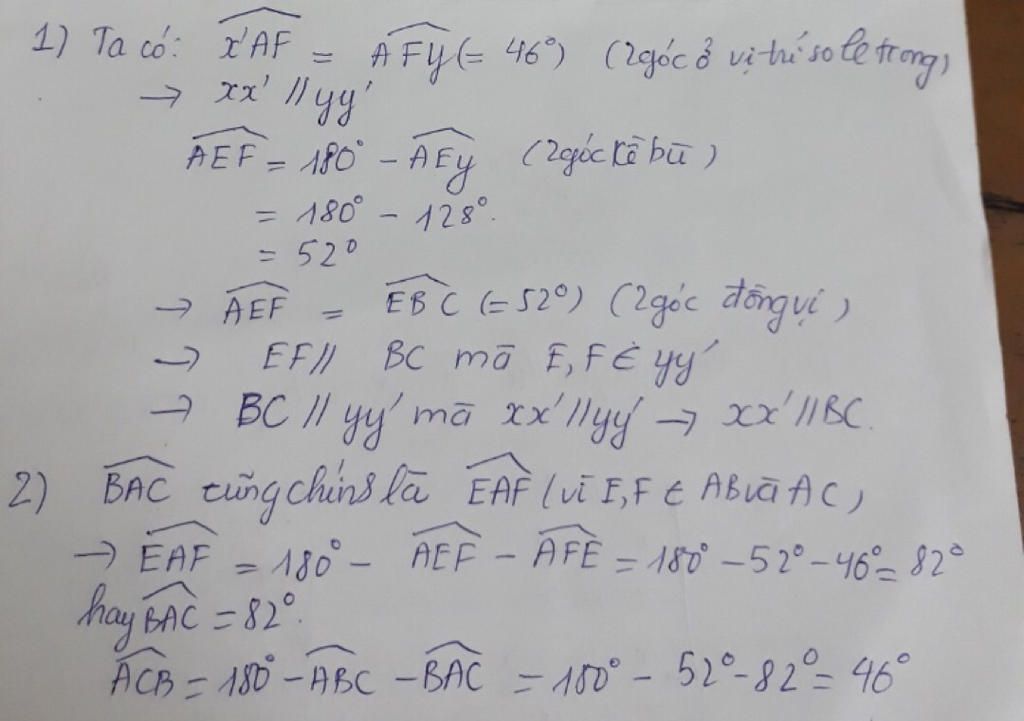 1) Ta có: x'AF = AFy (= 46°) (2 góc ở vị trí so le trong)
→ xx' // yy'
AEF = 180° - AEy (2 góc kề bù)
= 180° - 128°.
= 52°
→ AEF = EBC (= 52°) (2 góc đồng vị)
→ EF // BC mà E, F ∈ yy'
→ BC // yy' mà xx' // yy' → xx' // BC.
2) BAC cũng chính là EAF (vì E, F ∈ AB và AC)
→ EAF = 180° - AEF - AFE = 180° - 52° - 46° = 82°
hay BAC = 82°.
ACB = 180° - ABC - BAC = 180° - 52° - 82° = 46°